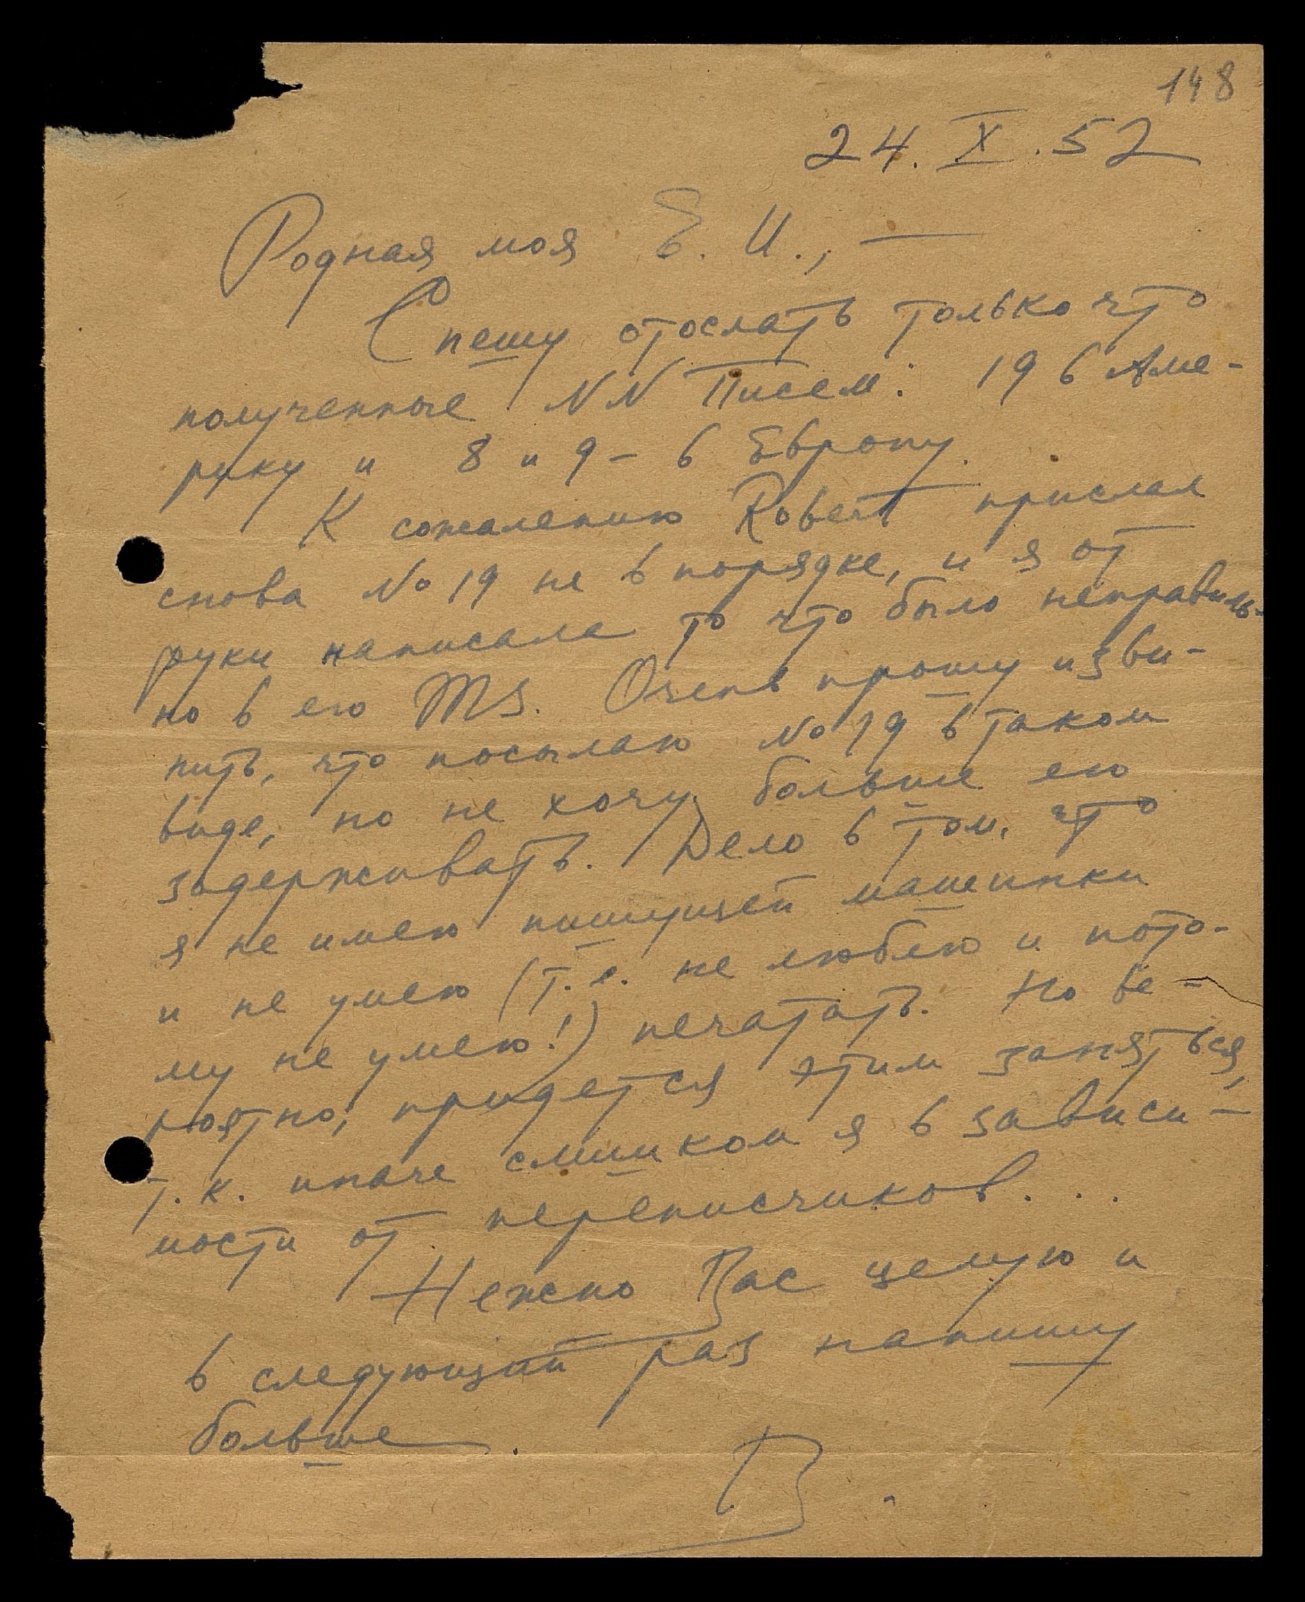 148
24. X. 52
Родная моя Е. И., —
Спешу отослать только что
полученные NN Писем: 19 в Аме-
рику и 8 и 9 – в Европу.
К сожалению Robert прислал
снова № 19 не в порядке, и я от
руки написала то что было неправиль-
но в его MS. Очень прошу изви-
нить, что посылаю № 19 в таком
виде, но не хочу больше его
задерживать. Дело в том, что
я не имею пишущей машинки
и не умею (т.е. не люблю и пото-
му не умею!) печатать. Но ве-
роятно, придется этим заняться,
т. к. иначе слишком я в зависи-
мости от переписчиков. . .
Нежно Вас целую и
в следующий раз напишу
больше.
В.